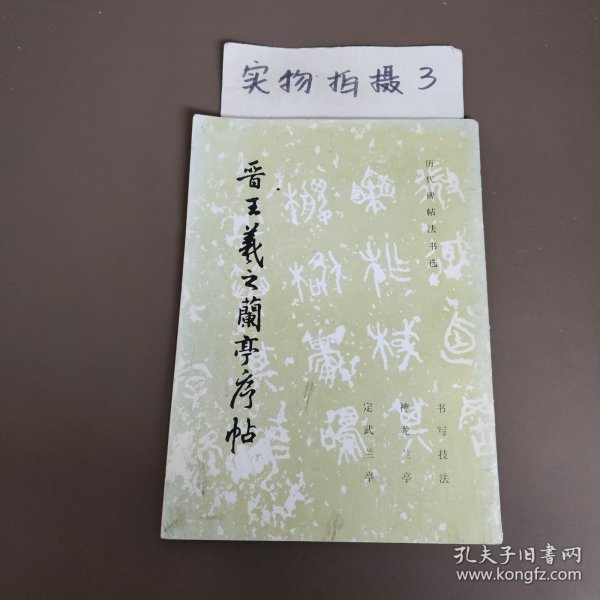 实物拍摄3
历代碑帖法书选
晋王羲之蘭亭序帖
书写技法
神龙兰亭
定武兰亭
孔夫子旧书网
www.kongfz.com